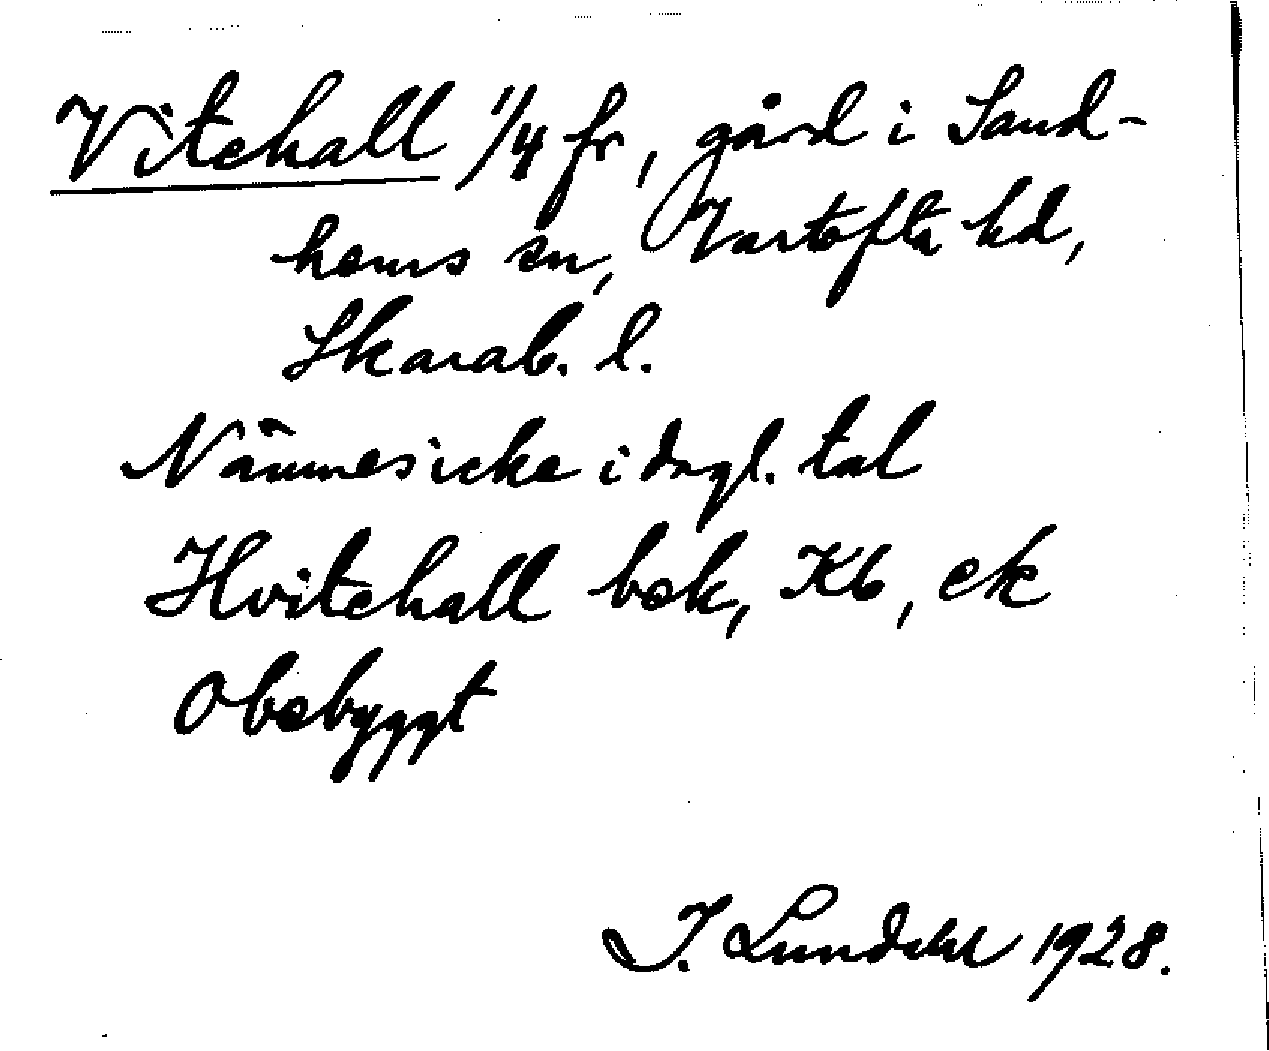 Vitehall 1/4 fr, gård i Sand-
hems sn, Vartofta hd,
Skarab. l.
Nämnes icke i dagl. tal
Hvitehall bok, Kb, ek
Obebyggt
I. Lundahl 1928.